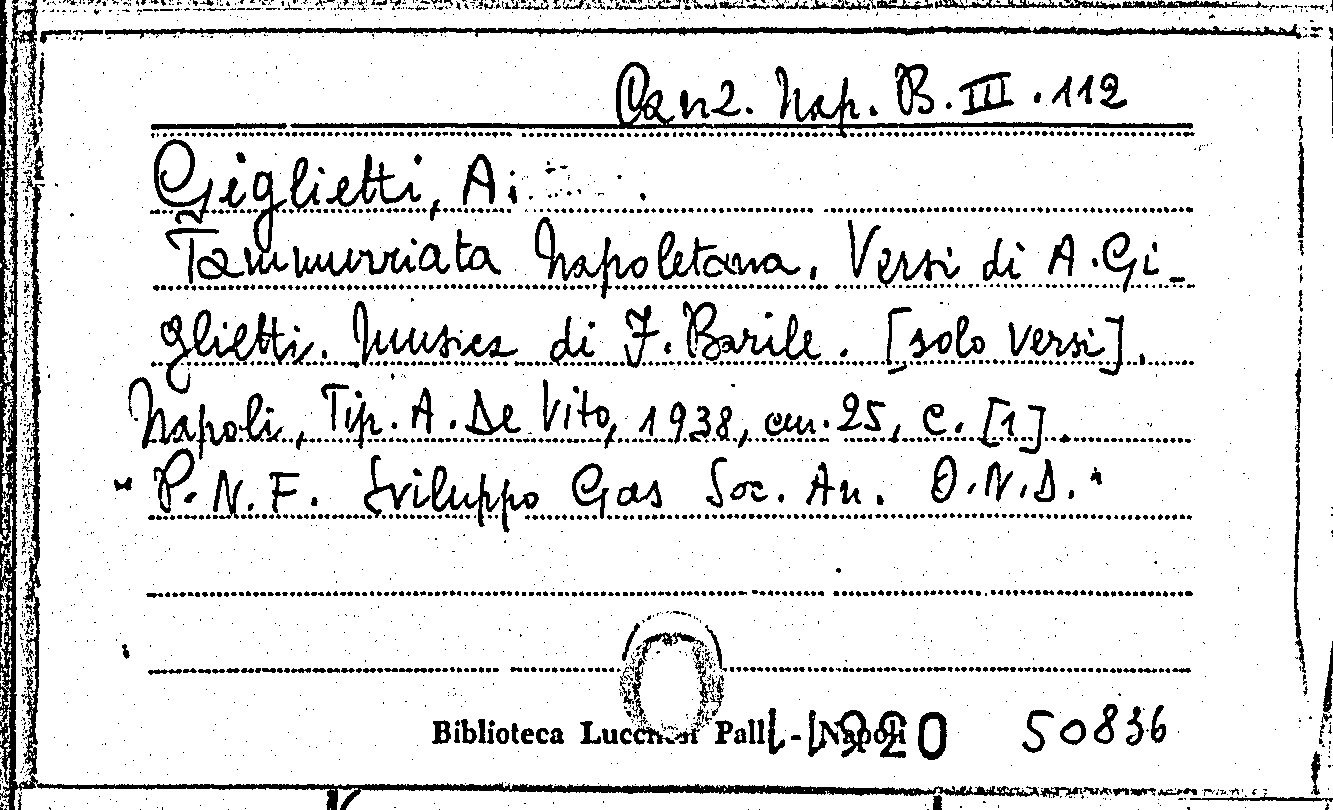 Canz. Nap. B. III. 112
Giglietti, A.
Tammurriata Napoletana. Versi di A. Gi-
glietti. Musica di F. Barile. [solo versi].
Napoli, Tip. A. De Vito, 1938, cm. 25, c. [1].
"P.N.F. Sviluppo Gas Soc. An. O.N.D."
Biblioteca Lucchesi Palli - Napoli 50836